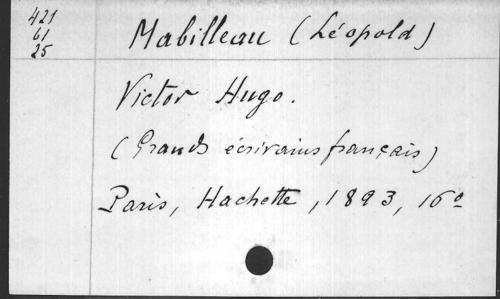 421
61
25
Mabilleau (Léopold)
Victor Hugo.
(Grands écrivains français)
Paris, Hachette, 1893, 16º